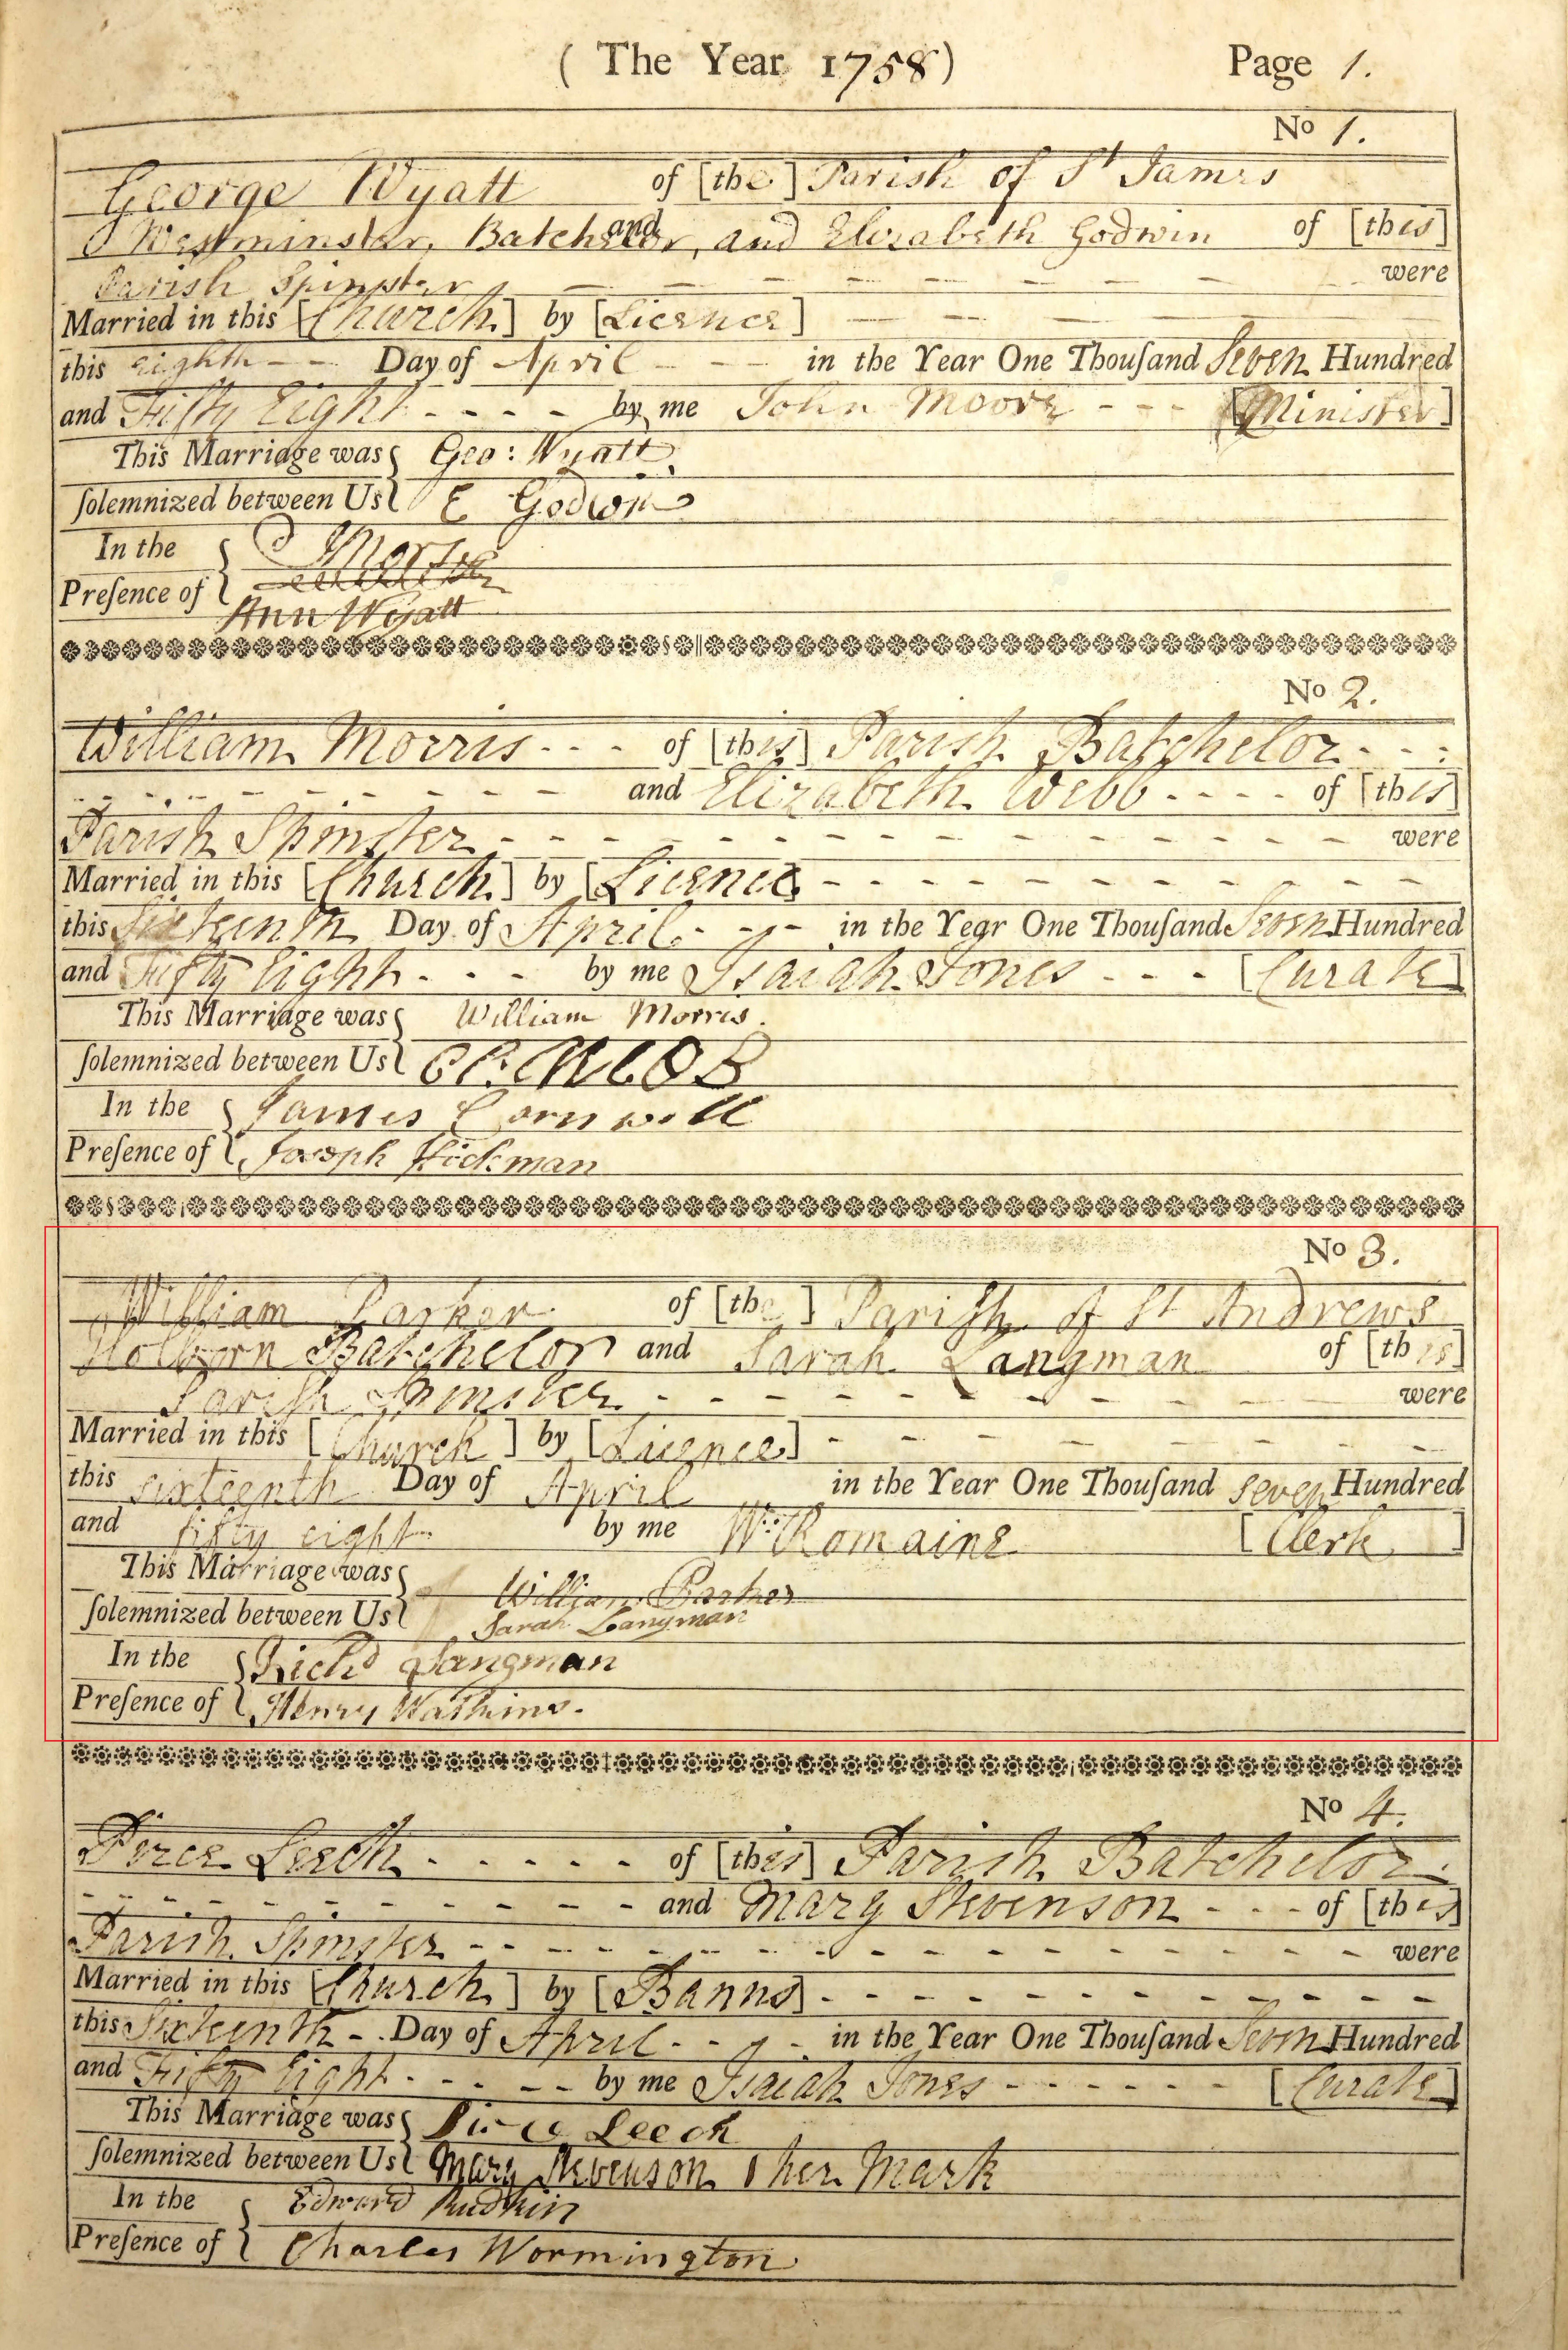 ( The Year 1758) Page 1.
No 1.
George Wyatt of [the] Parish of St James
Westminster, Batchelor, and and Elizabeth Godwin of [this]
Parish Spinster were
Married in this [Church] by [Licence]
this eighth Day of April in the Year One Thouſand Seven Hundred
and Fifty Eight by me John Moore [Minister]
This Marriage was Geo: Wyatt
ſolemnized between Us E Godwin
In the
Preſence of
Ann Wyatt
No 2.
William Morris of [this] Parish Batchelor
and Elizabeth Webb of [this]
Parish Spinster were
Married in this [Church] by [Licence]
this Sixteenth Day of April in the Year One Thouſand Seven Hundred
and Fifty Eight by me Isaiah Jones [Curate]
This Marriage was William Morris.
ſolemnized between Us
In the James Cornwell
Preſence of Joseph Hickman
No 3.
William Parker of [the] Pariſh of St Andrews
Holborn Batchelor and Sarah Langman of [this]
Pariſh Spinster were
Married in this [Church] by [Licence]
this sixteenth Day of April in the Year One Thouſand seven Hundred
and fifty eight by me Wm: Romaine [Clerk]
This Marriage was William Parker
ſolemnized between Us Sarah Langman
In the Richd Langman
Preſence of Henry Watkins.
No 4.
Peirce Leech of [this] Parish Batchelor
and Mary Stevenson of [this]
Parish Spinster were
Married in this [Church] by [Banns]
this Sixteenth Day of April in the Year One Thouſand Seven Hundred
and Fifty Eight by me Isaiah Jones [Curate]
This Marriage was Leech
ſolemnized between Us Mary Stevenson her Mark
In the Edward Rudkin
Preſence of Charles Wormington